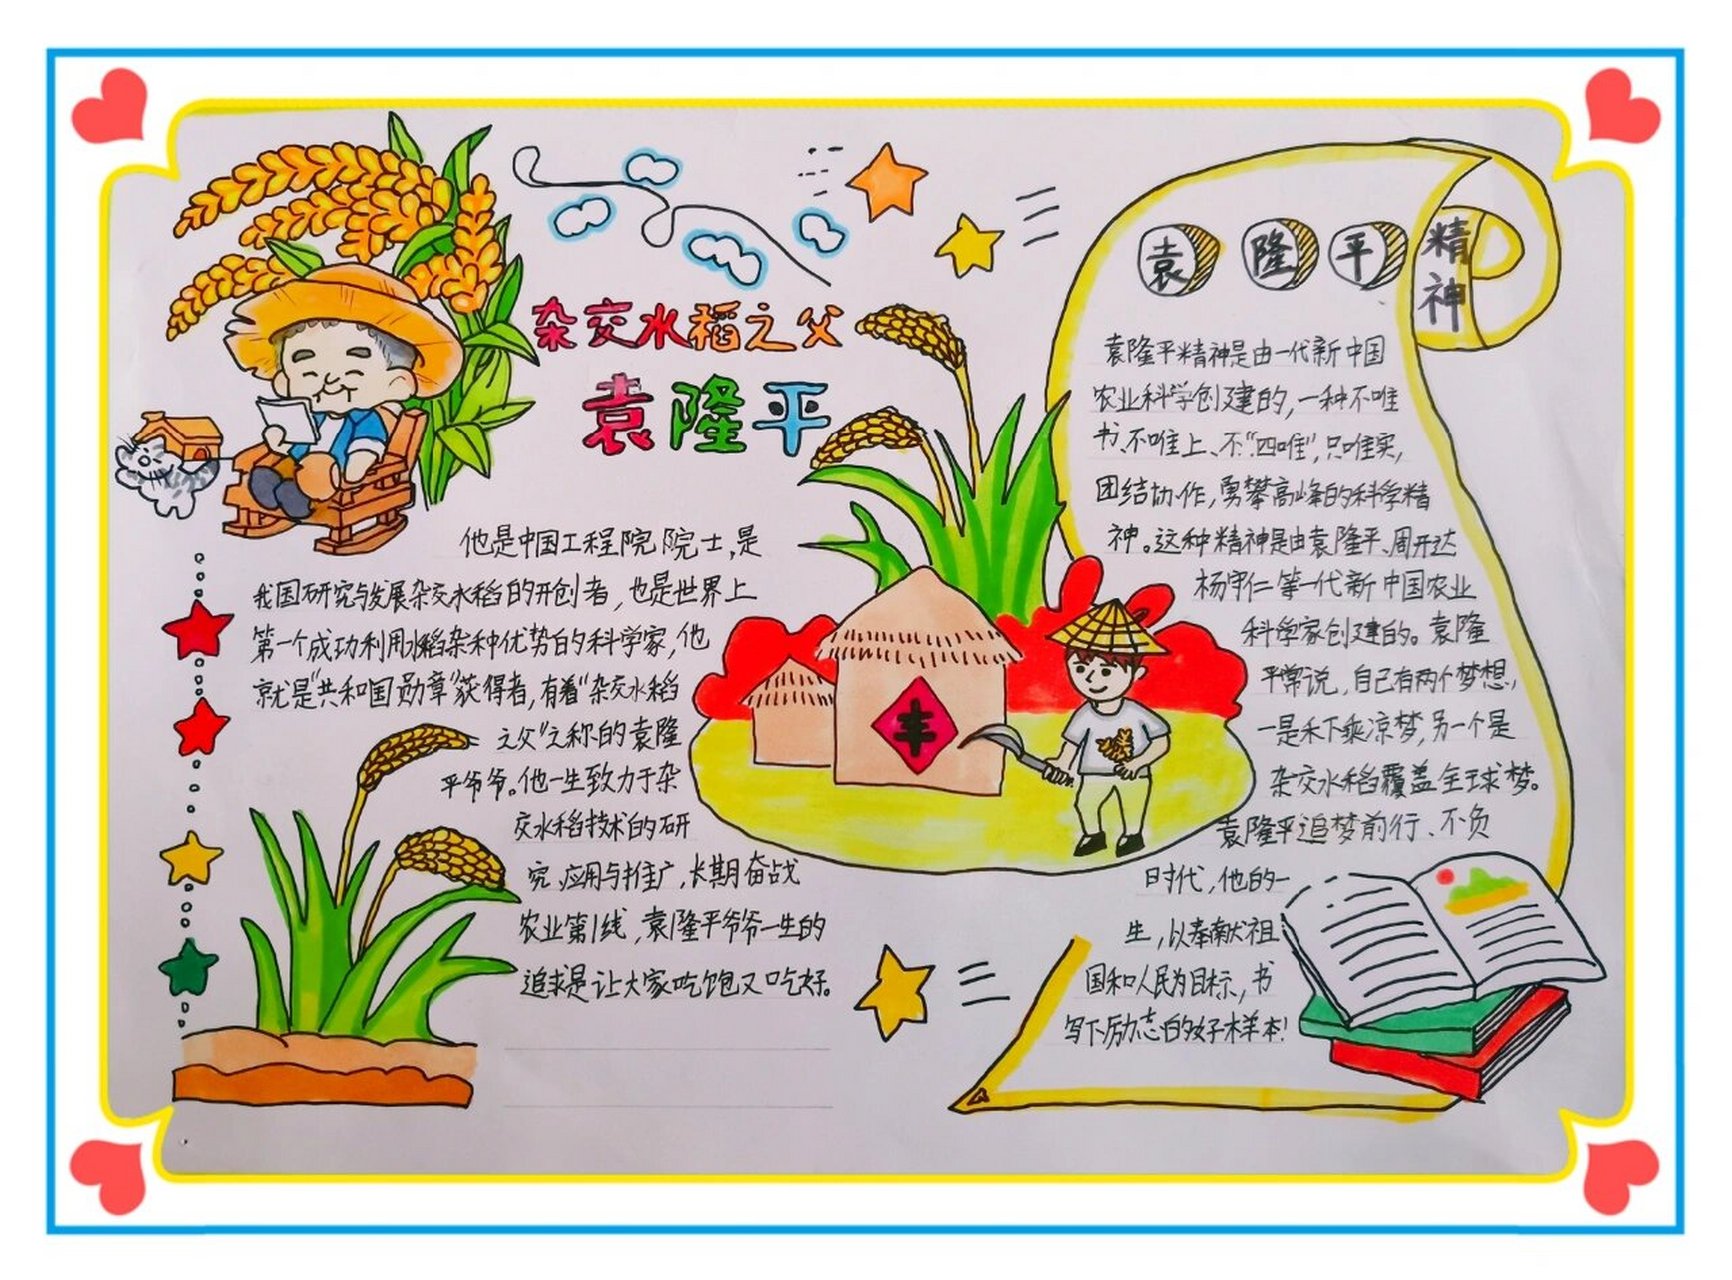 杂交水稻之父
袁隆平
他是中国工程院院士,是
我国研究与发展杂交水稻的开创者,也是世界上
第一个成功利用水稻杂种优势的科学家,他
就是“共和国勋章”获得者,有着“杂交水稻
之父”之称的袁隆
平爷爷。他一生致力于杂
交水稻技术的研
究、应用与推广,长期奋战
农业第1线,袁隆平爷爷一生的
追求是让大家吃饱又吃好。
丰
袁隆平精神
袁隆平精神是由一代新中国
农业科学创建的,一种不唯
书、不唯上、不“四唯”,只唯实,
团结协作,勇攀高峰的科学精
神。这种精神是由袁隆平、周开达
杨守仁等一代新中国农业
科学家创建的。袁隆
平常说,自己有两个梦想,
一是禾下乘凉梦,另一个是
杂交水稻覆盖全球梦。
袁隆平追梦前行、不负
时代,他的一
生,以奉献祖
国和人民为目标,书
写下励志的好样本!